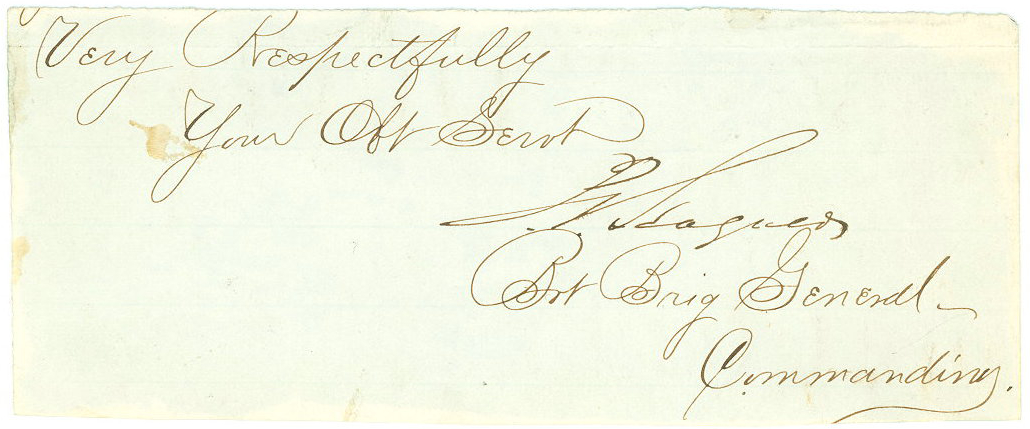 Very Respectfully
Your Obt Servt
Bvt Brig General
Commanding.